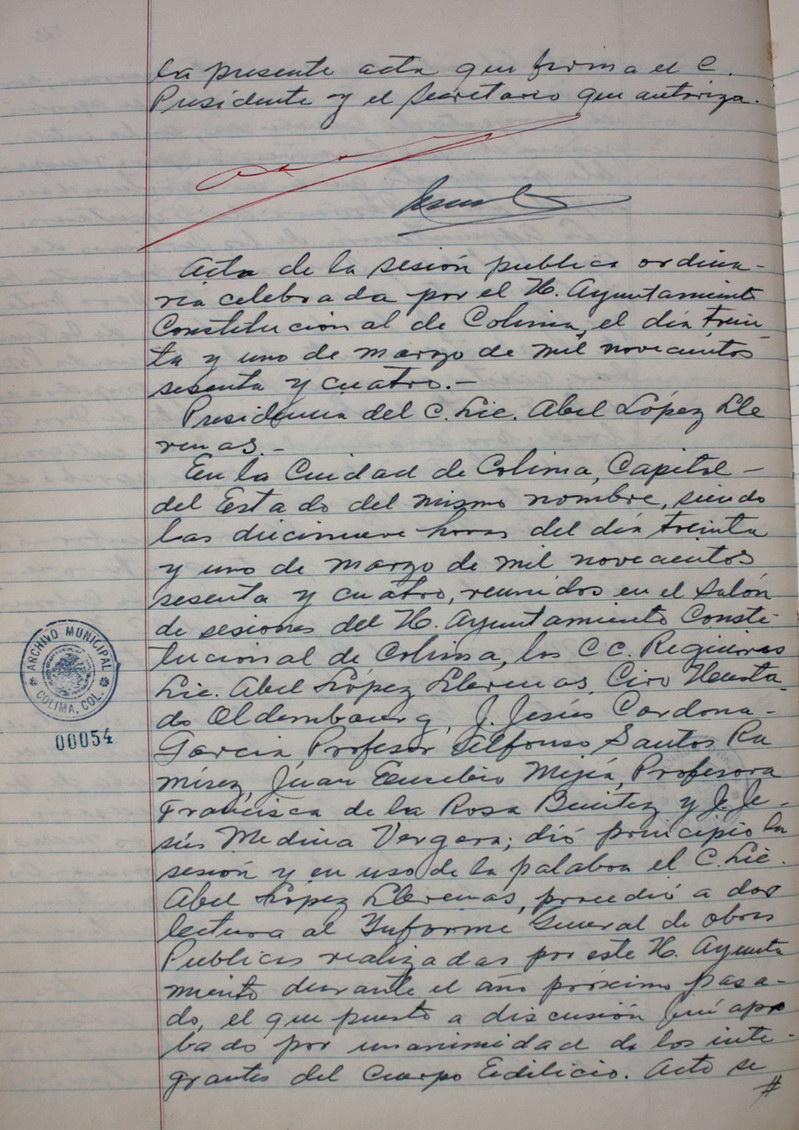 la presente acta que firma el C.
Presidente y el secretario que autoriza.
Acta de la sesión publica ordina-
ria celebrada por el H. Ayuntamiento
Constitucional de Colima, el día trein-
ta y uno de marzo de mil novecientos
sesenta y cuatro.-
Presidencia del C. Lic. Abel López Lle
renas.-
En la Cuidad de Colima, Capital-
del Estado del mismo nombre, siendo
las diecinueve horas del día treinta
y uno de marzo de mil novecientos
sesenta y cuatro, reunidos en el Salón
de sesiones del H. Ayuntamiento Consti-
tucional de Colima, los CC. Regidores
Lic. Abel López Llerenas, Ciro Hurta-
do Oldembourg, J. Jesús Cardona-
Garcia Profesor Alfonso Santos Ra
mírez, Juan Eusebio Mejía, Profesora
Francisca de la Rosa Benitez y J. Je-
sús Medina Vergara; dió principio la
sesión y en uso de la palabra el C. Lic.
Abel López Llerenas, procedió a dar
lectura al Informe General de obras
Publicas realizadas por este H. Ayunta
miento durante el año próximo pasa-
do, el que puesto a discusión fué apro
bado por unanimidad de los inte-
grantes del Cuerpo Edilicio. Acto se
#
ARCHIVO MUNICIPAL
COLIMA, COL.
00054